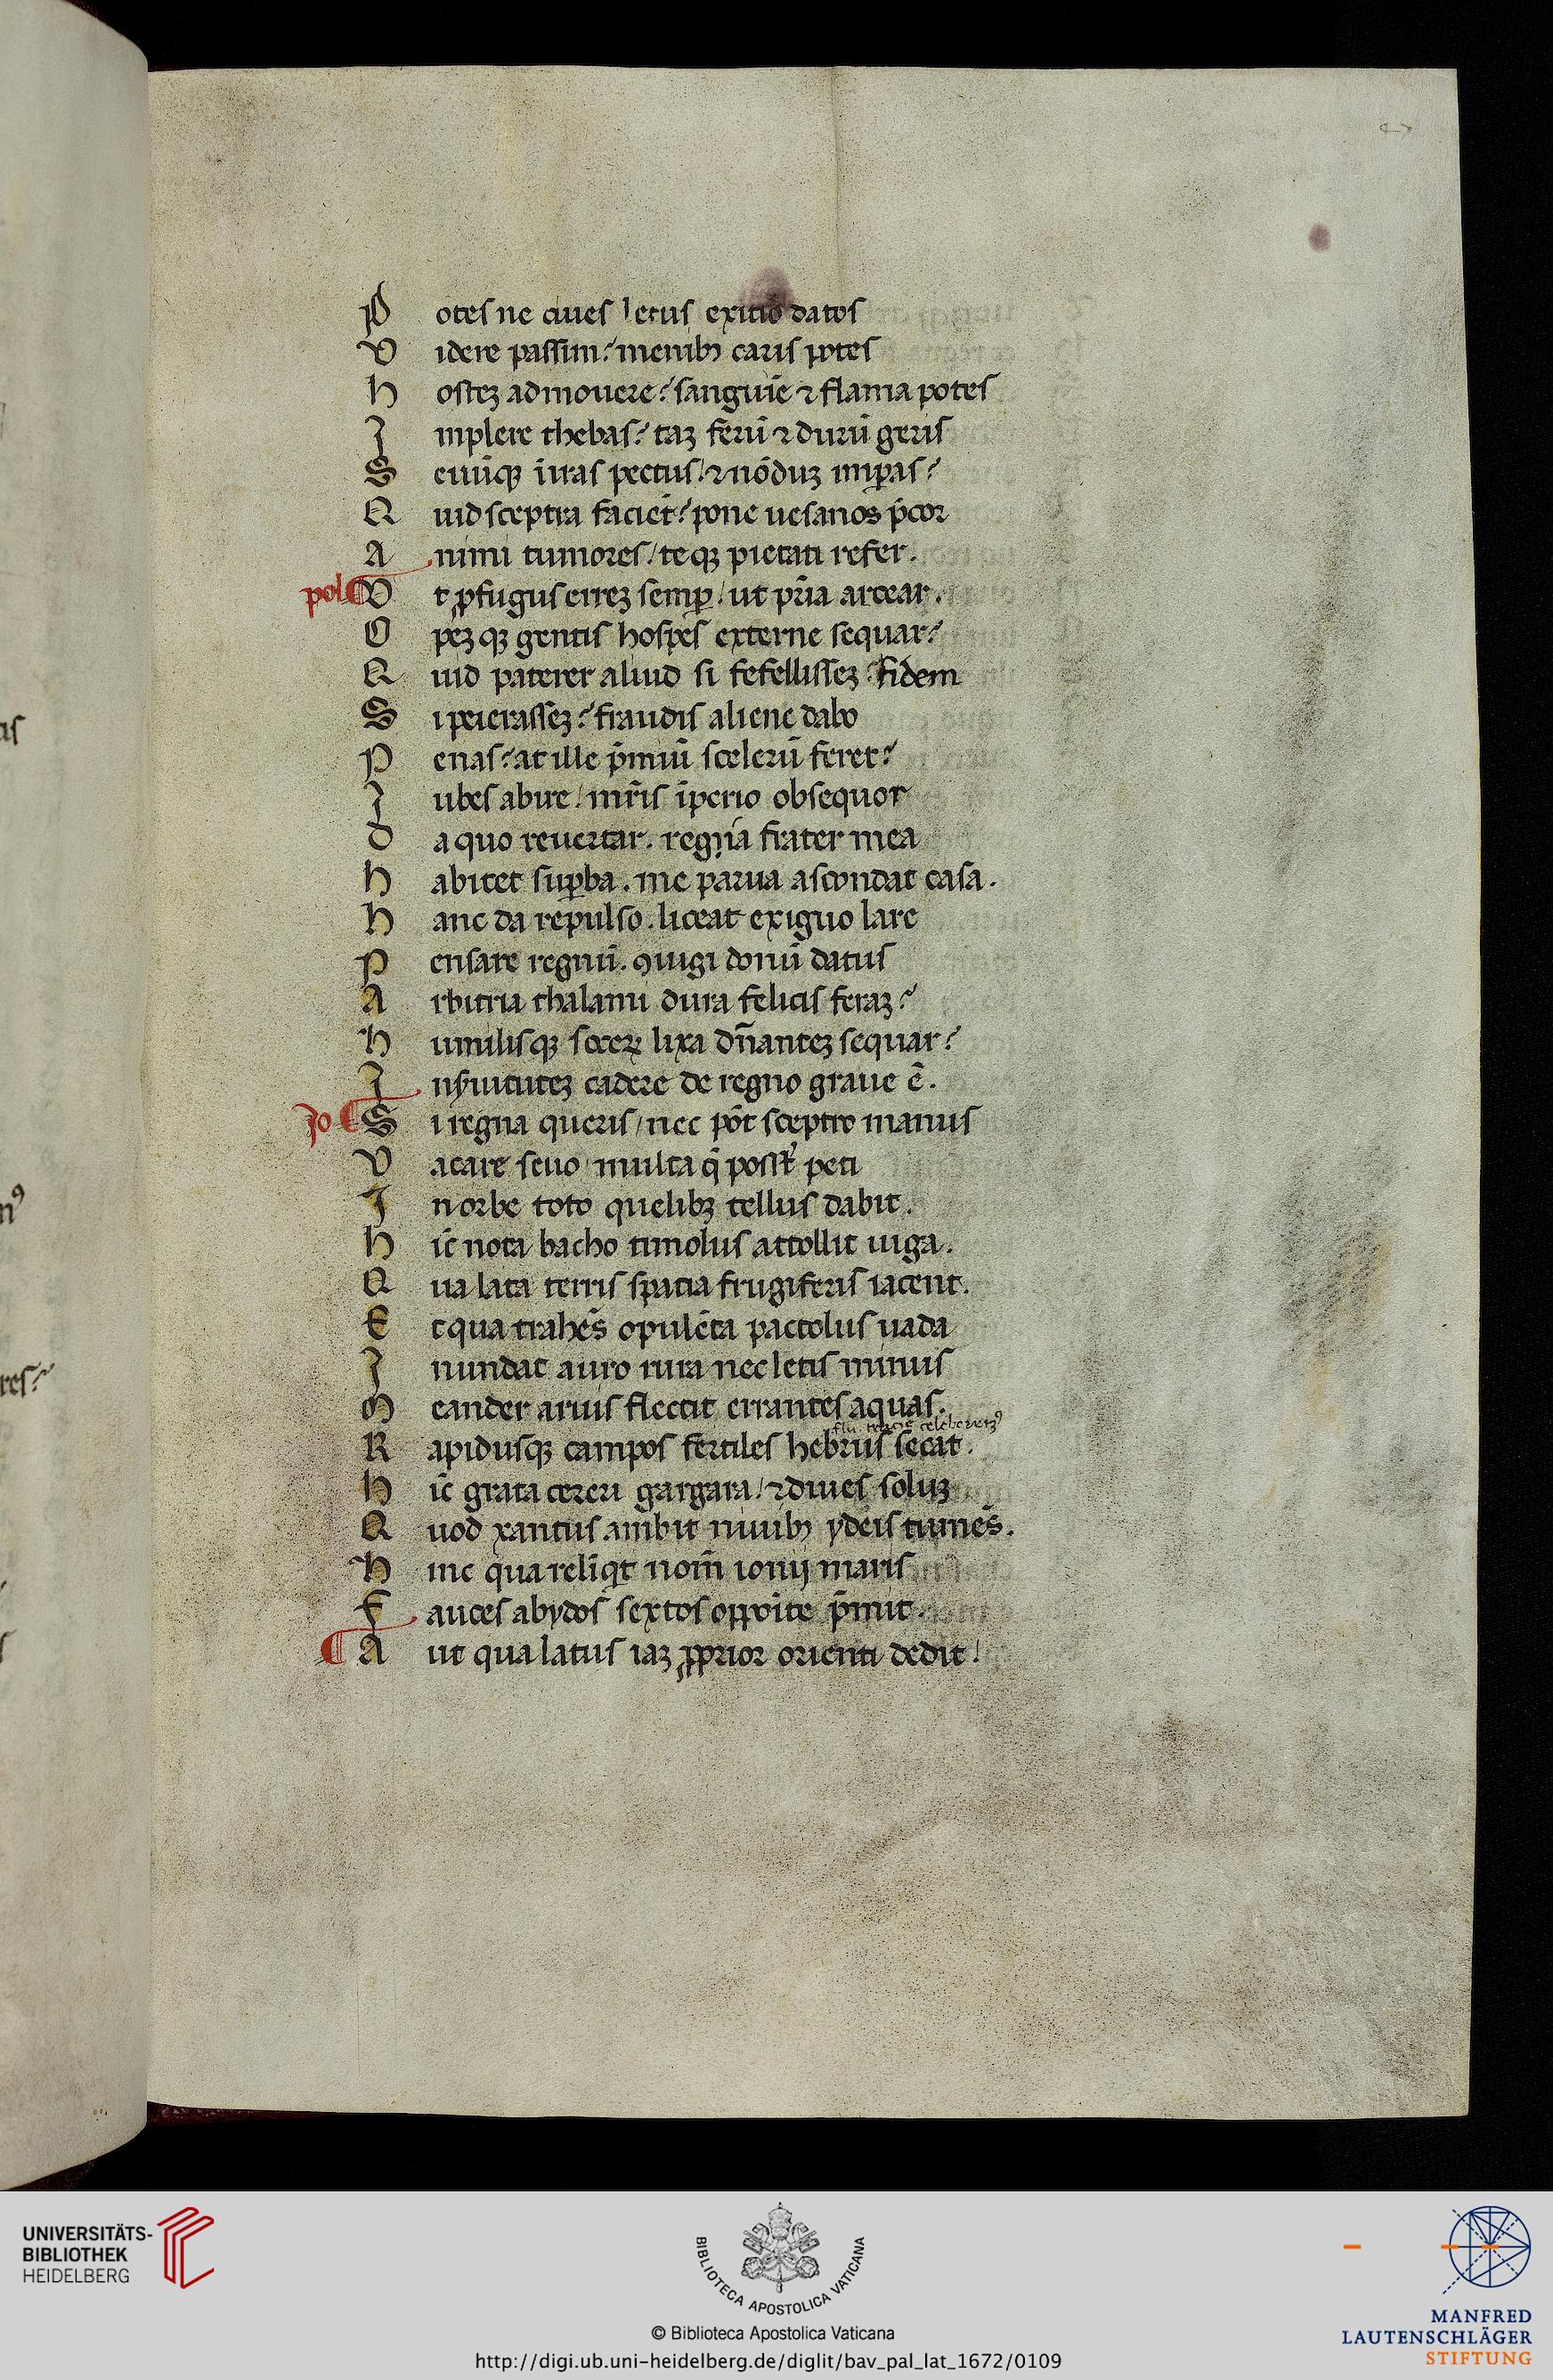 P otes ne ciues letus exitio datos
V idere passim? menibꝫ caris potes
H osteꝫ admouere? sanguiē ⁊ flama potes
I mplere thebas? taꝫ ferū ⁊ durū geris
S euūqꝫ ī iras pectus / ⁊ nōduꝫ imꝑas?
Q uid sceptra faciēt? pone uesanos p̄cor
A nimi tumores / te qꝫ pietati refer.
pol V t ꝓfugus erreꝫ semꝑ / ut pr̄ia arcear.
O peꝫ qꝫ gentis hospes externe sequar?
Q uid paterer aliud si fefellisseꝫ fidem
S i peierasseꝫ? fraudis aliene dabo
P enas? at ille p̄miū scelerū feret?
I ubes abire / mr̄is īperio obsequor
D a quo reuertar. regna frater mea
H abitet suꝑba. me parua ascondat casa.
H anc da repulso. liceat exiguo lare
P ensare regnū. ꝯiugi donū datus
A rbitria thalami dura felicis feraꝫ?
H umilisqꝫ soceꝝ lixa dn̄anteꝫ sequar?
I n ẏuituteꝫ cadere de regno graue ē.
Jo S i regna queris / nec pōt sceptro manus
V acare seuo / multa q̄ posst̄ peti
I n orbe toto quelibꝫ tellus dabit.
H īc nota bacho timolus attollit iuga.
Q ua lata terris spatia frugiferis iacent.
E t qua trahēs opulēta pactolus uada
I nundat auro rura nec letis minus
M eander aruis flectit errantes aquas.
flu. tracie celeberrimꝰ
R apidusqꝫ campos fertiles hebrus secat.
H īc grata cereri gargara / ⁊ diues soluꝫ
Q uod xantus ambit niuibꝫ ydeis tumēs.
H inc qua reliq̄t nom̄ ionij maris
F auces abydos sextos opposite p̄mit.
A ut qua latus iaꝫ ꝓprior orienti dedit /
as
nꝰ
res?
UNIVERSITÄTS-
BIBLIOTHEK
HEIDELBERG
BIBLIOTECA APOSTOLICA VATICANA
© Biblioteca Apostolica Vaticana
http://digi.ub.uni-heidelberg.de/diglit/bav_pal_lat_1672/0109
MANFRED
LAUTENSCHLÄGER
STIFTUNG